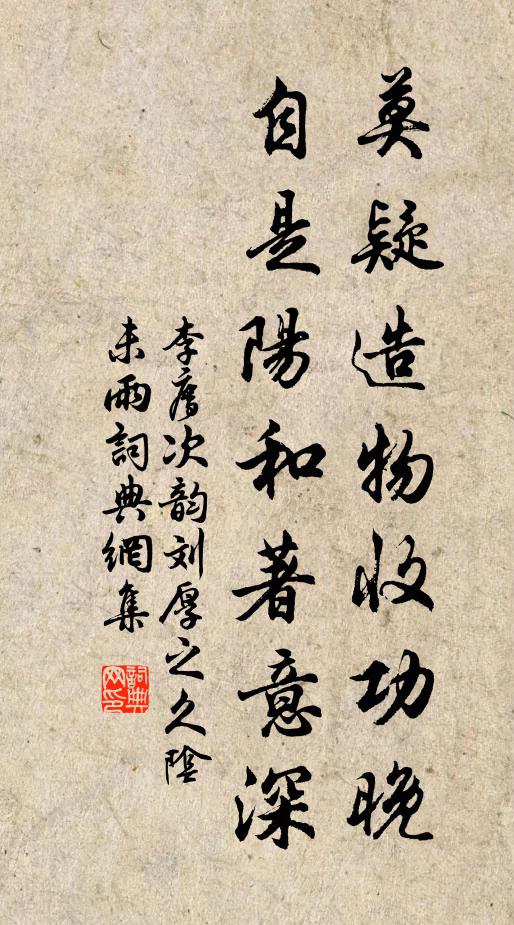 莫疑造物收功晚
自是陽和著意深
李廌次韵刘厚之久陰
未雨詞典網集
詞典网印